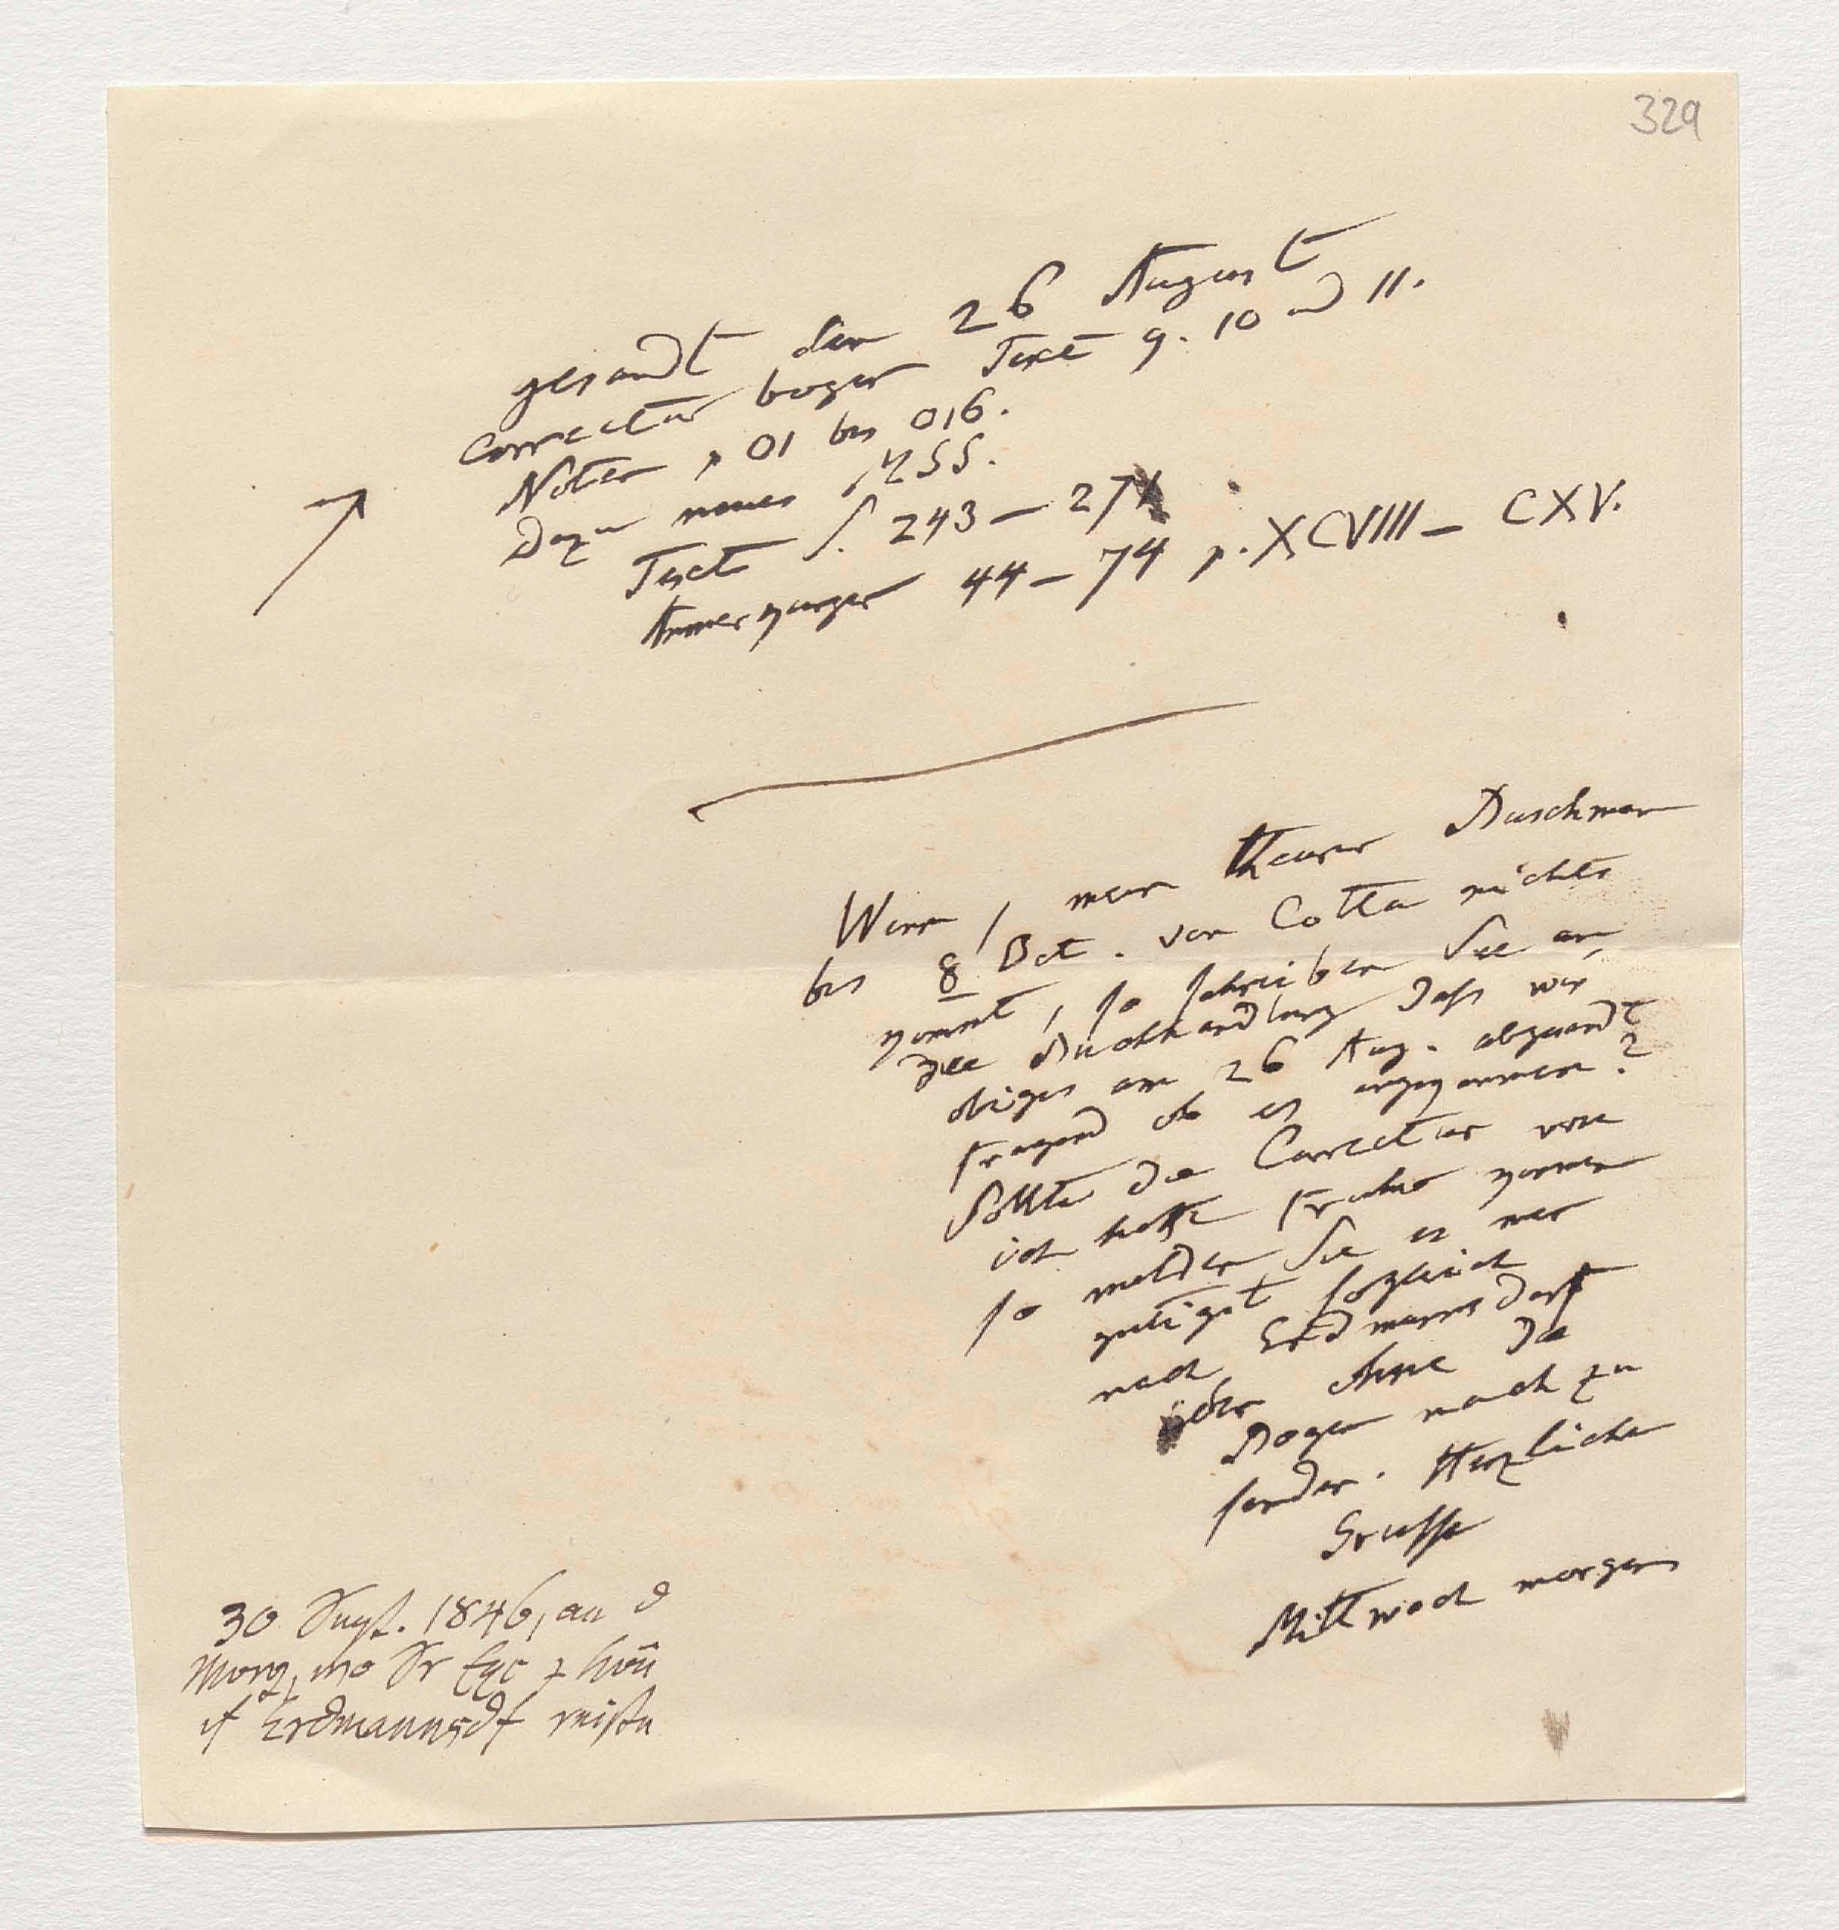 329
gesandt den 26 August
Correctur bogen Text 9. 10 und 11.
Noten p 01 bis 016.
Dazu neues
Text S. 243 – 27
Anmerkungen 44 – 74 p. XCVIII – CXV.
Wenn, mein theurer Buschman
bis 8 Oct. von Cotta nichts
kommt, so schreiben Sie an
die Buchhandlung dass wir
obiges am 26 Aug. abgesandt
fragend ob es angekommen?
Sollte die Correctur wie
ich hoffe früher kommen
so melden Sie es mir
gütigst sogleich
nach Erdmannsdorf
aber ohne die
Bogen nach zu
senden. Herzliche
Grüsse
Mittwoch morgens
30 Sept. 1846, an d
Morg, wo Sr Exc
Erdmannsdf reisten